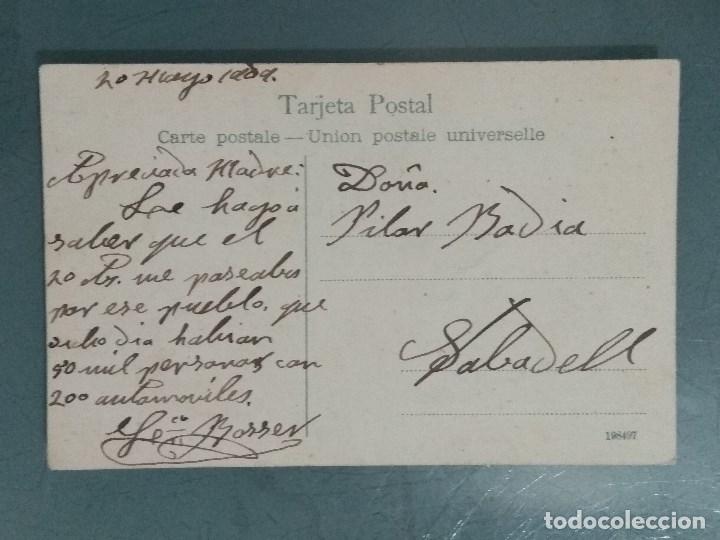 20 Mayo 1909.
Tarjeta Postal
Carte postale — Union postale universelle
Apreciada Madre:
Lae hago á
saber que el
20 me paseaba
por ese pueblo, que
dicho dia habian
50 mil personas con
200 automoviles.
Doña.
Pilar Badia
Sabadell
198497
todocoleccion.net